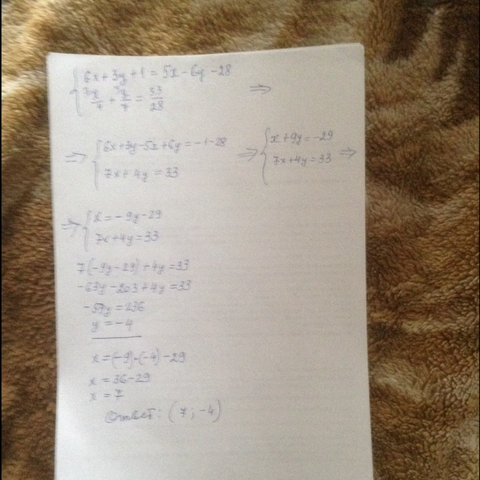 { 6x+3y+1=5x-6y-28
x/7 + y/7 = 33/28 =>
=> { 6x+3y-5x+6y=-1-28 => { x+9y=-29
7x+4y=33 7x+4y=33 =>
=> { x=-9y-29
7x+4y=33
7(-9y-29)+4y=33
-63y-203+4y=33
-59y=236
y=-4
x=(-9)·(-4)-29
x=36-29
x=7
Ответ: (7;-4)